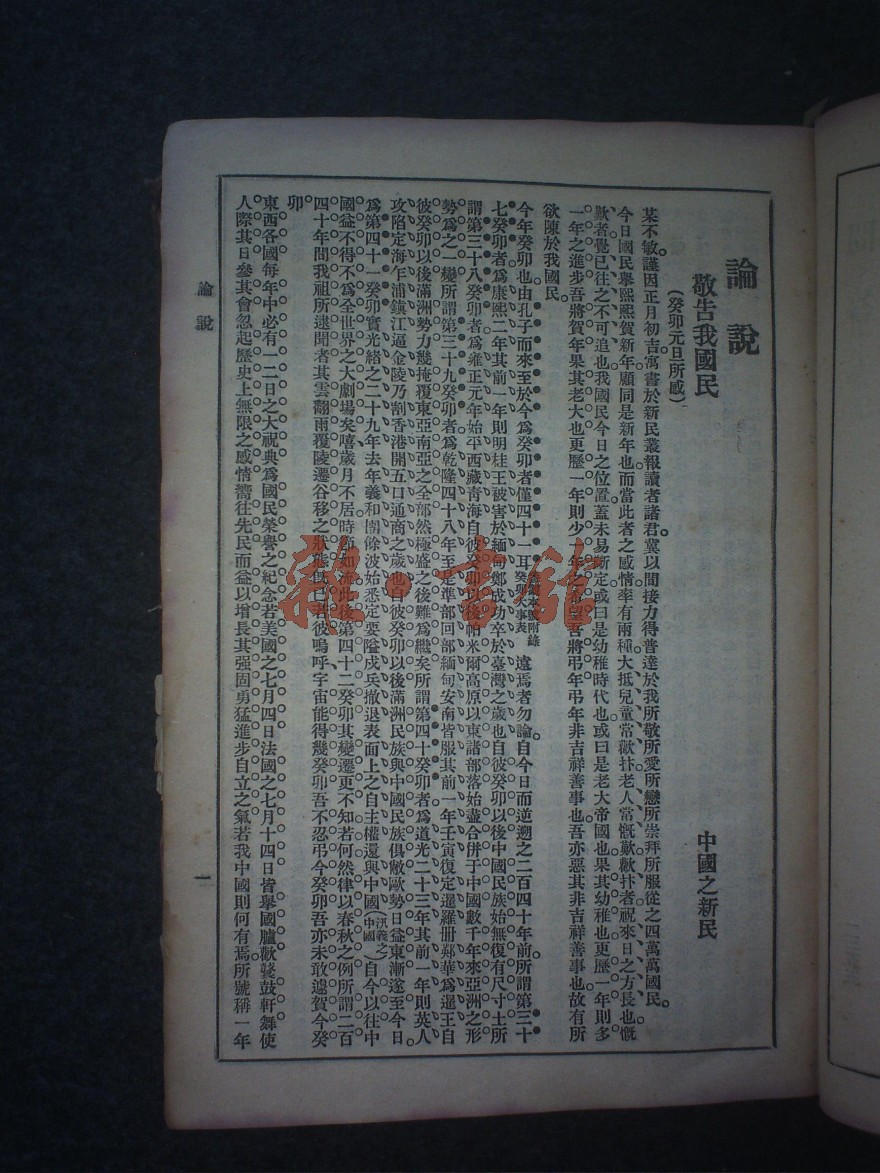 論說
敬告我國民
(癸卯元旦所感)
中國之新民
某不敏謹因正月初吉寓書於新民叢報讀者諸君冀以間接力得普達於我所敬所愛所戀所崇拜所服從之四萬萬國民。
今日國民舉熙熙賀新年顧同是新年也而當此者之感情率有兩種大抵兒童常歡抃老人常慨歎歡抃者祝來日之方長也慨
歎者覺已往之不可追也我國民今日之位置蓋未易斷定或曰是幼稚時代也或曰是老大帝國也果其幼稚也更歷一年則多
一年之進步吾將賀年果其老大也更歷一年則少一年之希望吾將弔年弔年非吉祥善事也吾亦惡其非吉祥善事也故有所
欲陳於我國民。
今年癸卯也由孔子而來至於今爲癸卯者僅四十一耳 遠焉者勿論。自今日而逆遡之二百四十年前所謂第三十
七癸卯者爲康熙二年其前一年則明桂王被害於緬甸鄭成功卒於臺灣之歲也自彼癸卯以後中國民族始無復有尺寸土所
謂第三十八癸卯者爲雍正元年始平西藏青海自彼癸卯以後帕米爾高原以東諸部落始盡合併于中國數千年來亞洲之形
勢爲之一變所謂第三十九癸卯者爲乾隆四十八年至是準部回部緬甸安南皆服其前一年壬寅復定暹羅冊鄭華爲暹王自
彼癸卯以後滿洲勢力幾掩覆東亞南亞之全部然極盛之後難爲繼矣所謂第四十癸卯者爲道光二十三年其前一年則英人
攻陷定海乍浦鎮江逼金陵乃割香港開五口通商之歲也自彼癸卯以後滿洲民族與中國民族俱敝歐勢日益東漸遂至今日。
爲第四十一癸卯實光緒之二十九年去年義和團餘波始悉定要隘戍兵撤退表面上之自主權還與中國(汎義之中國)自今以往中
國益不得不爲全世界之大劇場矣嘻歲月不居時節如流此後第四十二癸卯其變遷更不知若何然律以春秋之例所謂二百
四十年間我祖所逮聞者其雲翻雨覆陵遷谷移之狀態既已若彼嗚呼宇宙能得幾癸卯吾不忍弔今癸卯吾亦未敢遽賀今癸
卯。
東西各國每年中必有一二日之大祝典爲國民榮譽之紀念若美國之七月四日法國之七月十四日皆舉國臚歡鼚鼓軒舞使
人際其日參其會忽起歷史上無限之感情嚮往先民而益以增長其强固勇猛進步自立之氣若我中國則何有焉所號稱一年
論說
一
雜·書館